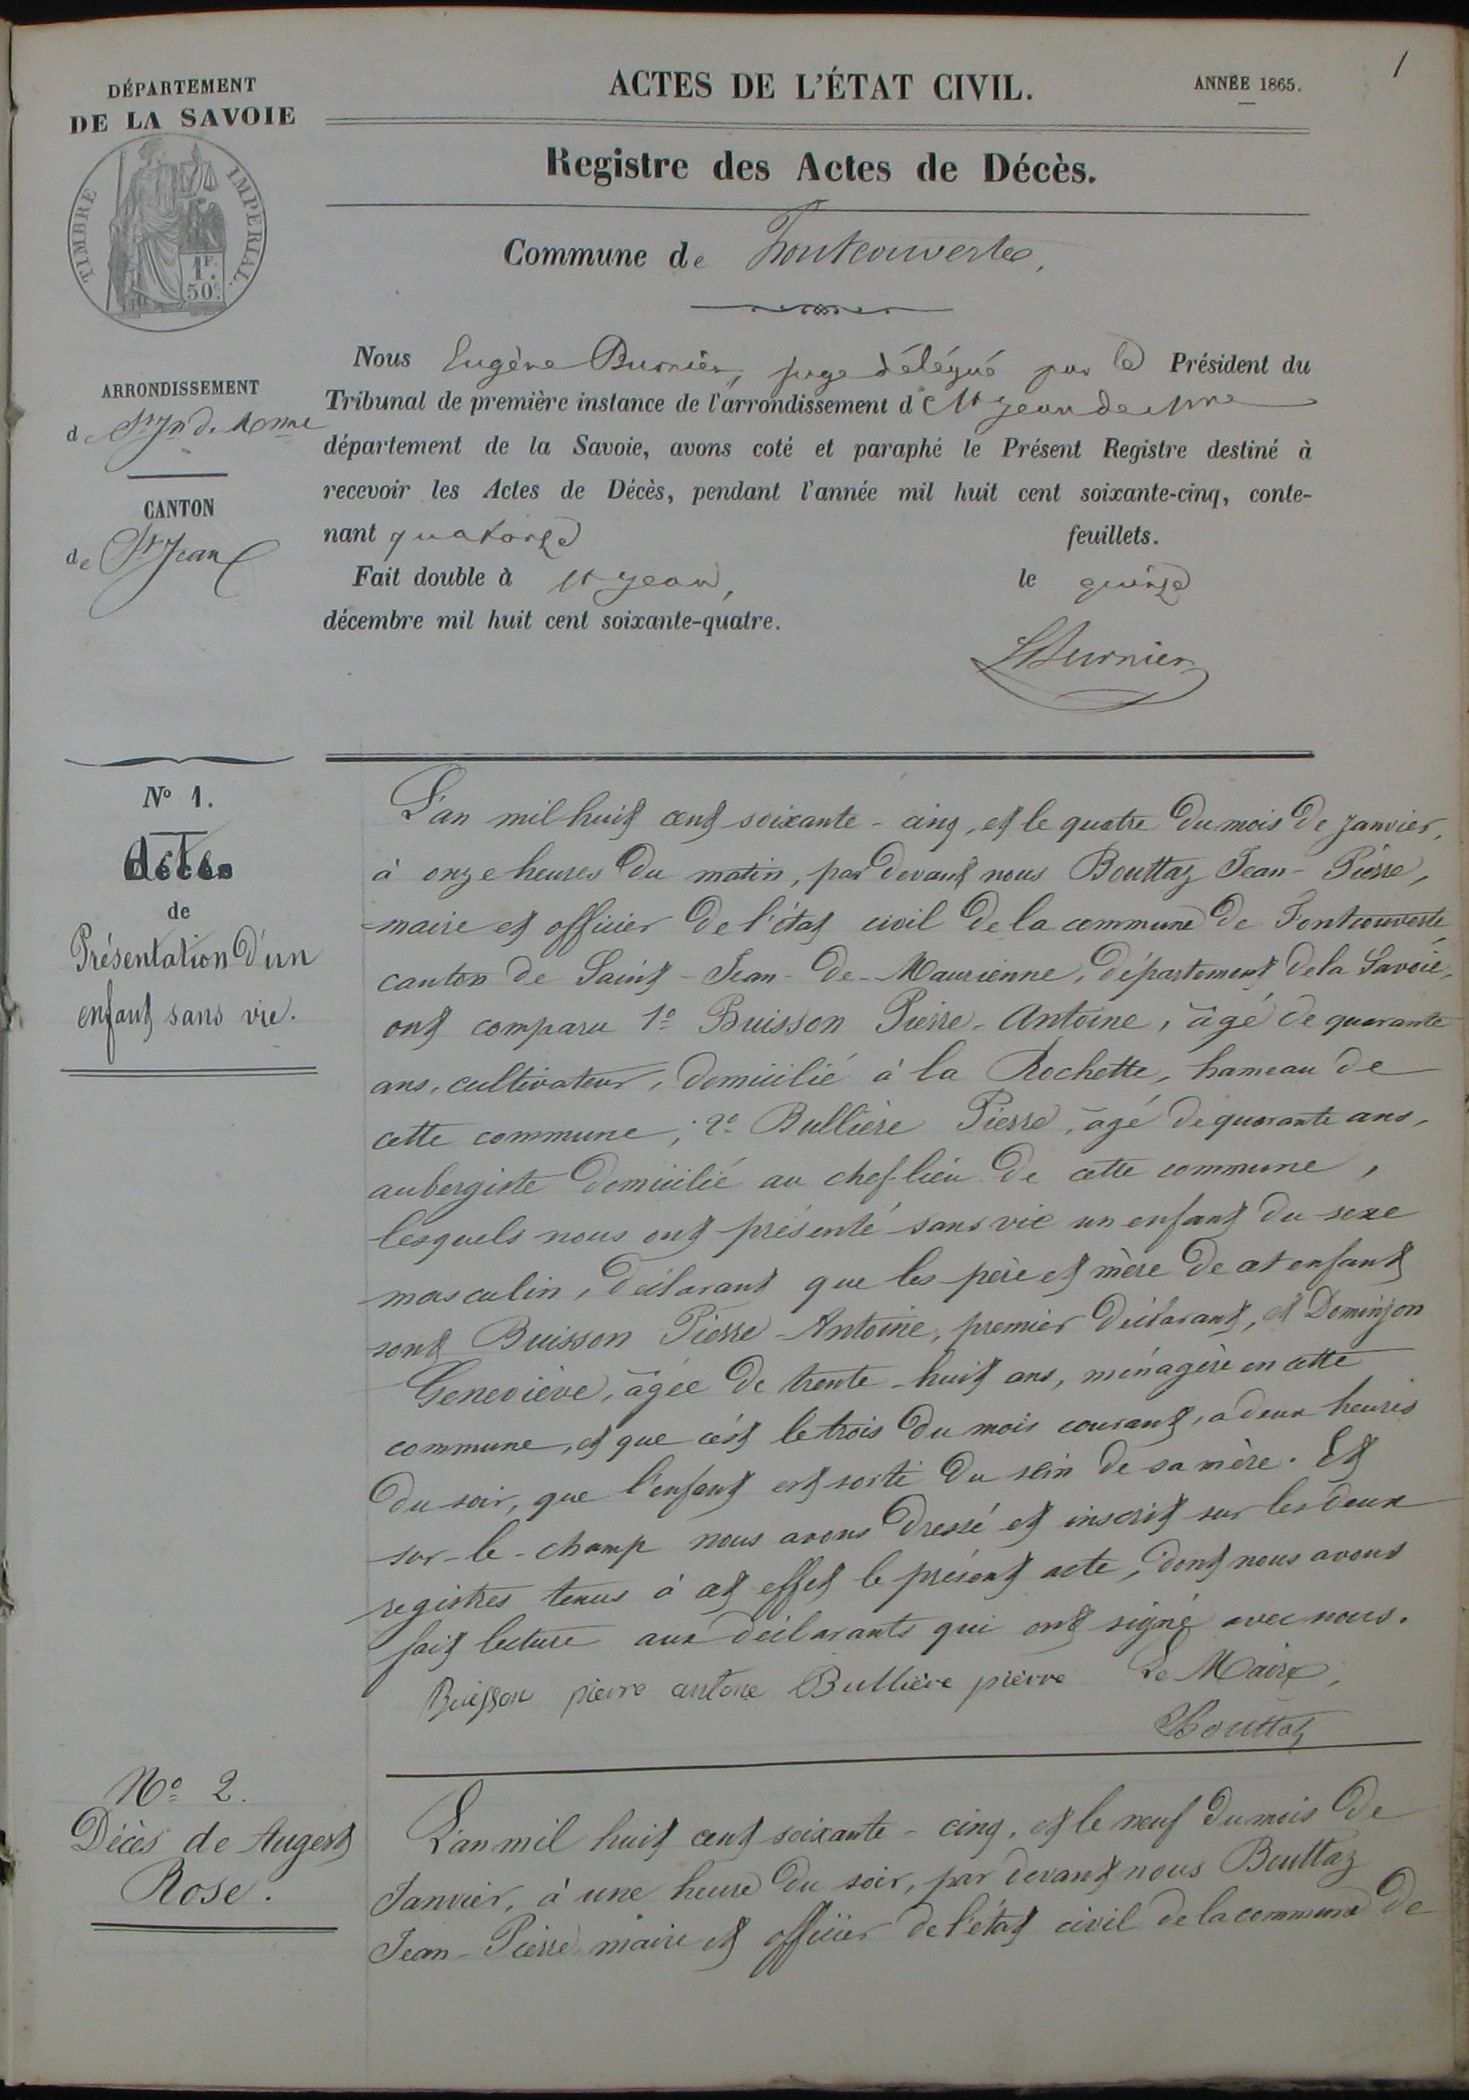 1
DÉPARTEMENT
DE LA SAVOIE
TIMBRE IMPERIAL
1F.
50C.
ARRONDISSEMENT
de St Jn de Mnne
CANTON
de St Jean
ACTES DE L'ÉTAT CIVIL.
ANNÉE 1865.
Registre des Actes de Décès.
Commune de Fontcouverte,
Nous Eugène Burnier, juge délégué par le Président du
Tribunal de première instance de l'arrondissement de St Jean de Mne
département de la Savoie, avons coté et paraphé le Présent Registre destiné à
recevoir les Actes de Décès, pendant l'année mil huit cent soixante-cinq, conte-
nant quatorze feuillets.
Fait double à St Jean, le quinze
décembre mil huit cent soixante-quatre.
Burnier
No 1.
Acte
de
Présentation d'un
enfant sans vie.
L'an mil huit cent soixante-cinq, et le quatre du mois de janvier,
à onze heures du matin, par devant nous Bouttaz Jean-Pierre,
maire et officier de l'état civil de la commune de Fontcouverte
canton de Saint-Jean-de-Maurienne, département de la Savoie,
ont comparu 1o Buisson Pierre-Antoine, âgé de quarante
ans, cultivateur, domicilié à la Rochette, hameau de
cette commune; 2o Bullière Pierre, âgé de quarante ans,
aubergiste domicilié au chef-lieu de cette commune,
lesquels nous ont présenté sans vie un enfant du sexe
masculin, déclarant que les père et mère de cet enfant
sont Buisson Pierre-Antoine, premier déclarant, et Dominjon
Geneviève, âgée de trente-huit ans, ménagère en cette
commune, et que c'est le trois du mois courant, à deux heures
du soir, que l'enfant est sorti du sein de sa mère. Et
sur-le-champ nous avons dressé et inscrit sur les deux
registres tenus à cet effet le présent acte, dont nous avons
fait lecture aux déclarants qui ont signé avec nous.
Buisson pierre antone Bullière pierre Le Maire,
Bouttaz
No 2.
Décès de Augert
Rose.
L'an mil huit cent soixante-cinq, et le neuf du mois de
Janvier, à une heure du soir, par devant nous Bouttaz
Jean-Pierre maire et officier de l'état civil de la commune de